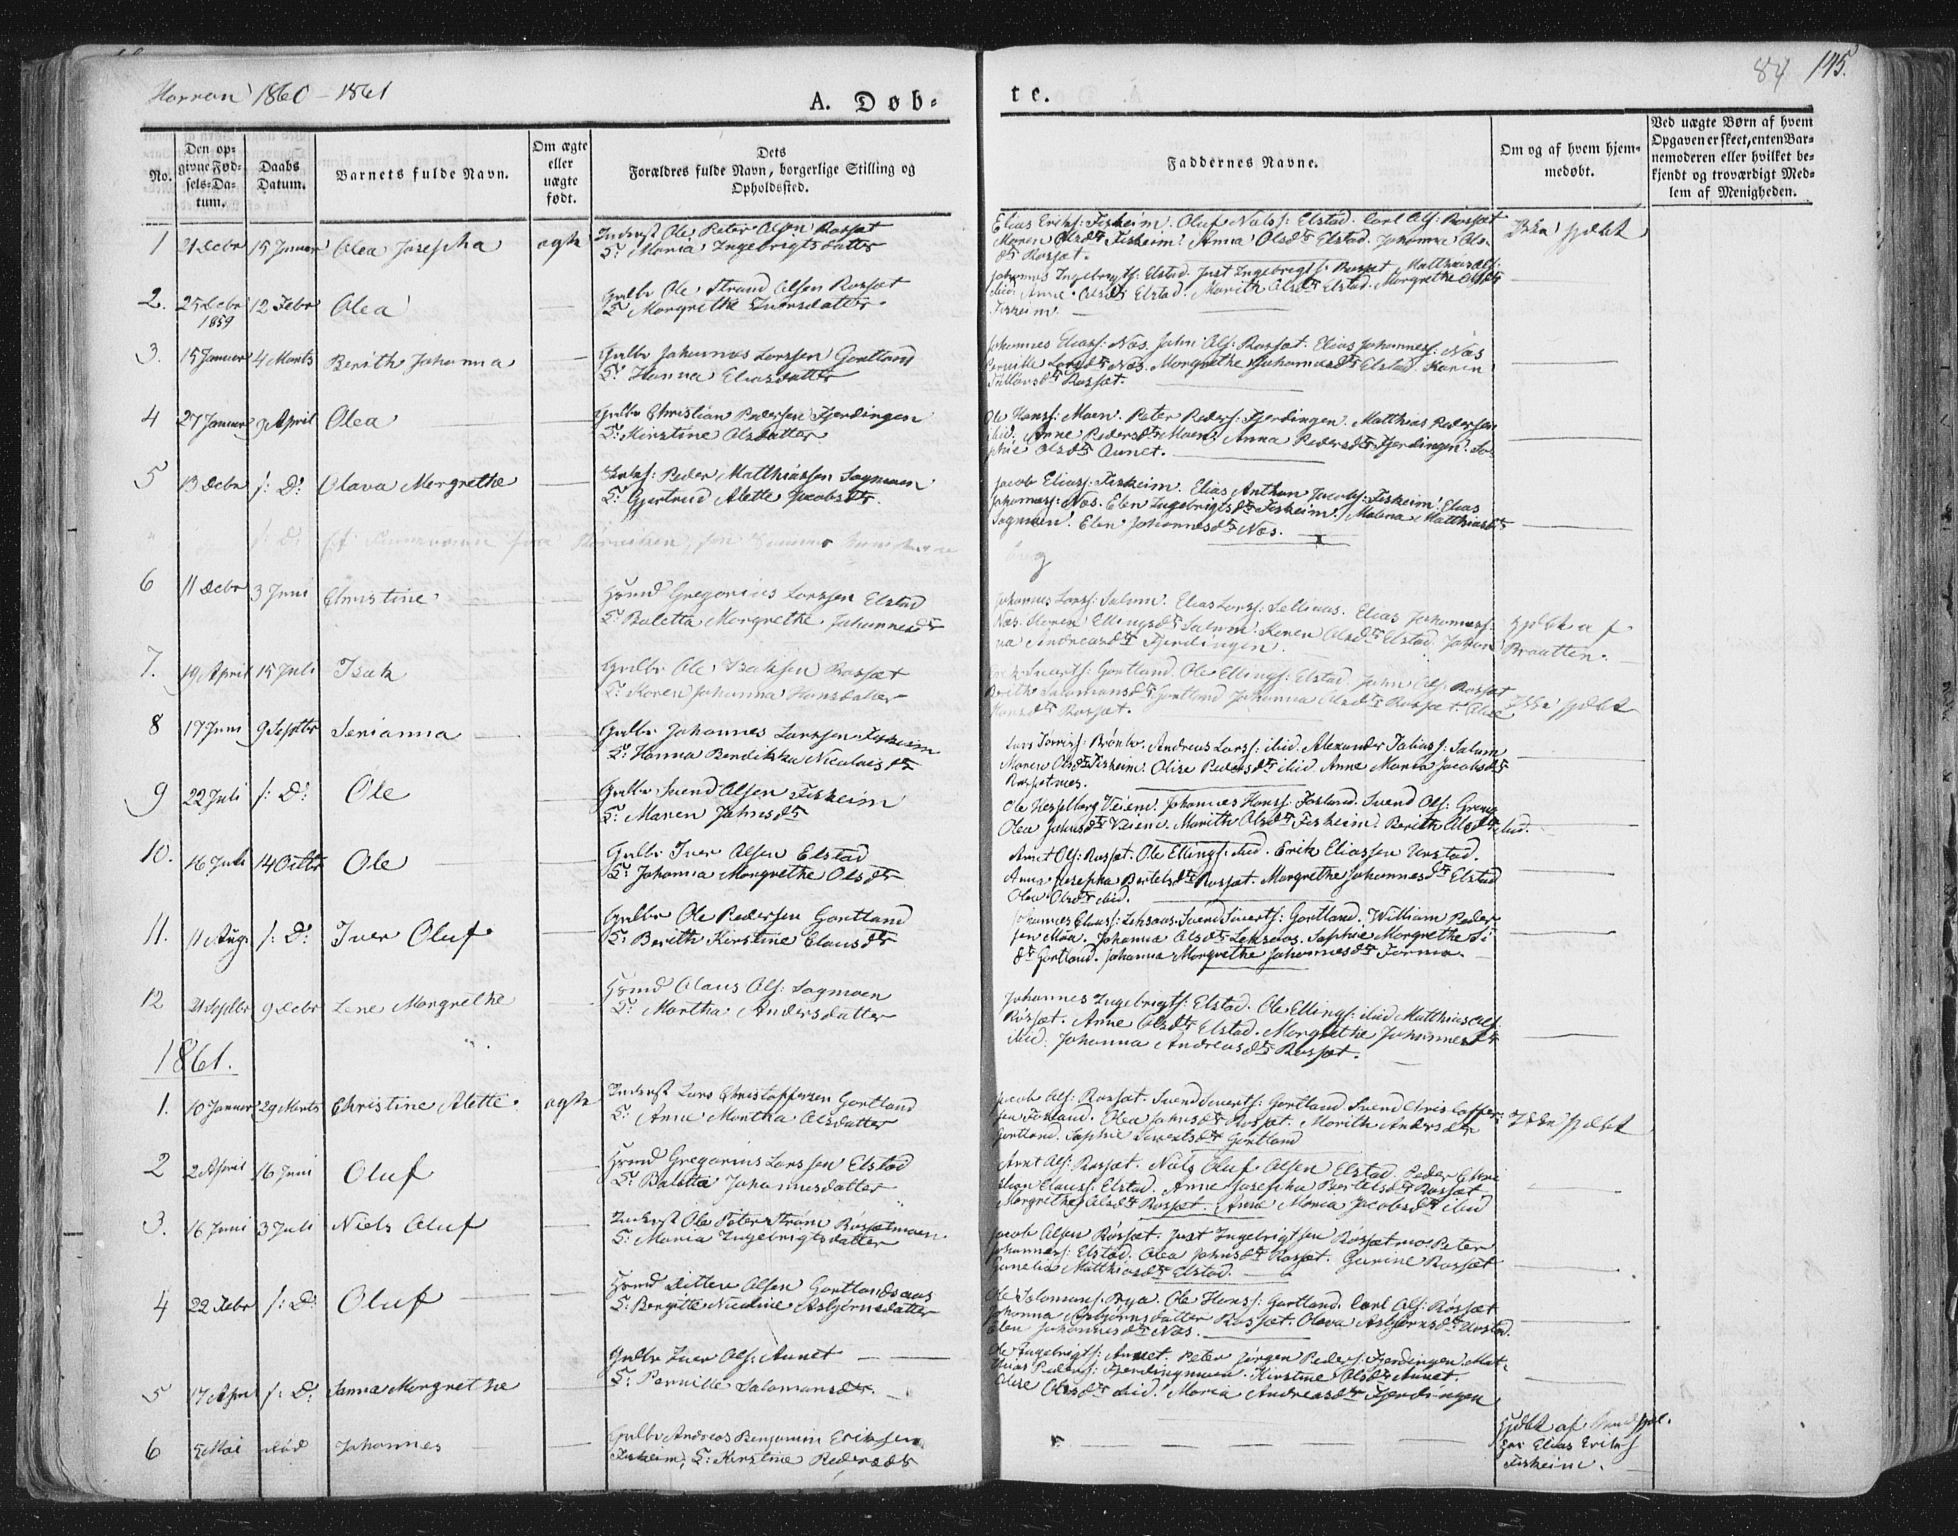 Harran 1860-1861
A. Døb-
te.
84 145.
No.
Den op-
givne Fød-
sels-Da-
tum.
Daabs
Datum.
Barnets fulde Navn.
Om ægte
eller
uægte
født.
Dets
Forældres fulde Navn, borgerlige Stilling og
Opholdssted.
Faddernes Navne.
Om og af hvem hjem-
medøbt.
Ved uægte Børn af hvem
Opgaven er skeet, enten Bar-
nemoderen eller hvilket be-
kjendt og troværdigt Med-
lem af Menigheden.
1 21 Decbr 15 Januar Olea Josepha ægte
Inderst Ole Peter Olsen Rosset
H: Maria Ingebrigtsdatter
Elias Eriks: Fiskeim. Oluf Nils: Elstad. Carl Ols: Rosset
Maren Olsdtr Fiskeim. Anna Olsdtr Elstad. Johanna Ols-
dtr Rosset.
Ikke hjdøbt
2. 25 Decbr 12 Febr Olea
1859
Gulbr Ole Strand Olsen Rosset
H: Margrethe Iversdatter.
Johannes Ingebrigts: Elstad. Just Ingebrigts: Rosset. Matthias Ols:
ibid. Anne Olsdtr Elstad. Marith Olsdtr Elstad. Margrethe Olsdtr
Fiskeim.
3. 15 Januar 4 Marts Berith Johanna
Gulbr Johannes Larssen Gartland
H: Hanna Eliasdatter
Johannes Elias: Næs. John Ols: Rosset. Elias Johannes: Næs
Pernille Larsdtr Næs. Margrethe Johannesdtr Elstad. Karen
Rosset.
4 27 Januar 9 April Olea
Gulbr Christian Pedersen Fjerdingen
H: Kirstine Olsdatter
Ole Hans: Moen. Peter Peders: Fjerdingen. Matthias Pedersen
ibid. Anne Pedersdtr Moen. Anna Pedersdtr Fjerdingen. So-
phie Olsdtr Aunet.
5 13 Decbr s: D: Olava Margrethe
Inds: Peder Matthiassen Sagmoen
H: Gjertrud Alette Jacobsdtr.
Jacob Elias: Fiskeim. Elias Anthon Jacobs: Fiskeim. Elias
Johannes: Næs. Elen Ingebrigtsdtr Fiskeim. Malena Matthiasdtr
Sagmoen. Elen Johannesdtr Næs.
6 11 Decbr 3 Juni Christine
Hsmd Gregorius Larssen Elstad
H: Baletta Margrethe Johannesdtr
Johannes Lars: Salum. Elias Lars: Elias Johannes:
Næs. Maren Ellingsdtr Salum. Karen Olsdtr Elstad. Johan-
na Andreasdtr Fjerdingen.
Hjdøbt af
Braatten.
7. 19 April 15 Juli Isak
Gulbr Ole Isaksen Rosset
H: Karen Johanna Hansdatter
Siverts: Gartland. Ole Ellings: Elstad. John Ols: Rosset
Berith Salamonsdtr Gartland. Johanna Olsdtr Rosset. Olise
Hansdtr Rosset.
Ikke hjdøbt
8 17 Juni 9 Septbr Serianna
Gulbr Johannes Larssen Fiskeim
H: Hanna Bendikka Nicolaisdtr
Lars Brønbo. Andreas Lars: ibid. Alexander Tobias: Salum
Maren Olsdtr Fiskeim. Olise Pedersdtr ibid. Anne Maria Jacobsdtr
Rossetnes.
9 22 Juli s: D: Ole
Gulbr Svend Olsen Fiskeim
H: Maren Johnsdtr
Ole Hesselberg Veiem. Johannes Hans: Fosland. Svend Ols: Grong
Olea Johnsdtr Veiem. Marith Olsdtr Fiskeim. Berith Olsdtr ibid.
10. 16 Juli 14 Octbr Ole
Gulbr Iver Olsen Elstad
H: Johanna Margrethe Olsdtr
Arnt Ols: Rosset. Ole Ellings: ibid. Erik Eliassen Urstad.
Anne Josepha Bertelsdtr Rosset. Margrethe Johannesdtr Elstad
Olea Olsdtr ibid.
11. 11 Aug: s: D: Iver Oluf
Gulbr Ole Pedersen Gartland
H: Berith Kirstine Clausdtr
Johannes Claus: Leksaas. Svend Siverts: Gartland. William Peder-
sen Moa. Johanna Olsdtr Leksaas. Sophie Margrethe Si-
dtr Gartland. Johanna Margrethe Johannesdtr Formo.
12 21 Septbr 9 Decbr Lene Margrethe
Hsmd Claus Ols: Sagmoen
H: Martha Andersdatter
Johannes Ingebrigts: Elstad. Ole Ellings: ibid Matthias Ols:
Rosset. Anne Olsdtr Elstad. Margrethe Johannesdtr
ibid. Johanna Andreasdtr Rosset.
1861.
1. 10 Januar 29 Marts Christine Alette. ægte
Inderst Lars Christophersen Gartland
H: Anne Martha Olsdatter
Jacob Ols: Rosset. Svend Siverts: Gartland. Svend Christoffer-
sen Fosland. Olea Johnsdtr Rosset. Marith Andersdtr
Gartland. Sophie Sivertsdtr Gartland
Ikke hjdøbt
2 2 April 16 Juni Oluf
Hsmd Gregorius Larssen Elstad
H: Baletta Johannesdatter
Arnt Ols: Rosset. Niels Oluf Olsen Elstad. Peder Chri-
stian Claus: Elstad. Anne Josepha Bertelsdtr Rosset
Margrethe Olsdtr Rosset. Anne Maria Jacobsdtr ibid
3. 16 Juni 3 Juli Niels Oluf
Inderst Ole Peter Strøm Rossetmoen.
H: Maria Ingebrigtsdatter
Jacob Olsen Rosset. Just Ingebrigtsen Rossetmo. Peter
Johannes: Elstad. Olea Johnsdtr Rosset. Gurine Rosset
Matthiasdtr Elstad.
4 22 Febr s: D: Oluf
Hsmd Ditlev Olsen Gartlandsaas
H: Bergitte Nicoline Asbjørnsdatter
Ole Salamons: Rya. Ole Hans: Gartland. Carl Ols: Rosset
Johanna Asbjørnsdatter Rosset. Olava Asbjørnsdtr Urstad.
Elen Johannesdtr Næs.
5 17 April s: D: Sanna Margrethe
Gulbr Iver Ols: Aunet
H: Pernille Salamonsdtr.
Ole Ingebrigts: Aunet. Peter Jørgen Peders: Fjerdingen. Mat-
thias Peders: Fjerdingmoen. Kirstine Olsdtr Aunet.
Olise Olsdtr ibid. Maria Andreasdtr Fjerdingen
6 5 Mai død Johannes
Gulbr Andreas Benjamin Eriksen
Fiskeim, H: Kirstine Pedersdtr
Hjdøbt af
Elias Eriks:
Fiskeim.